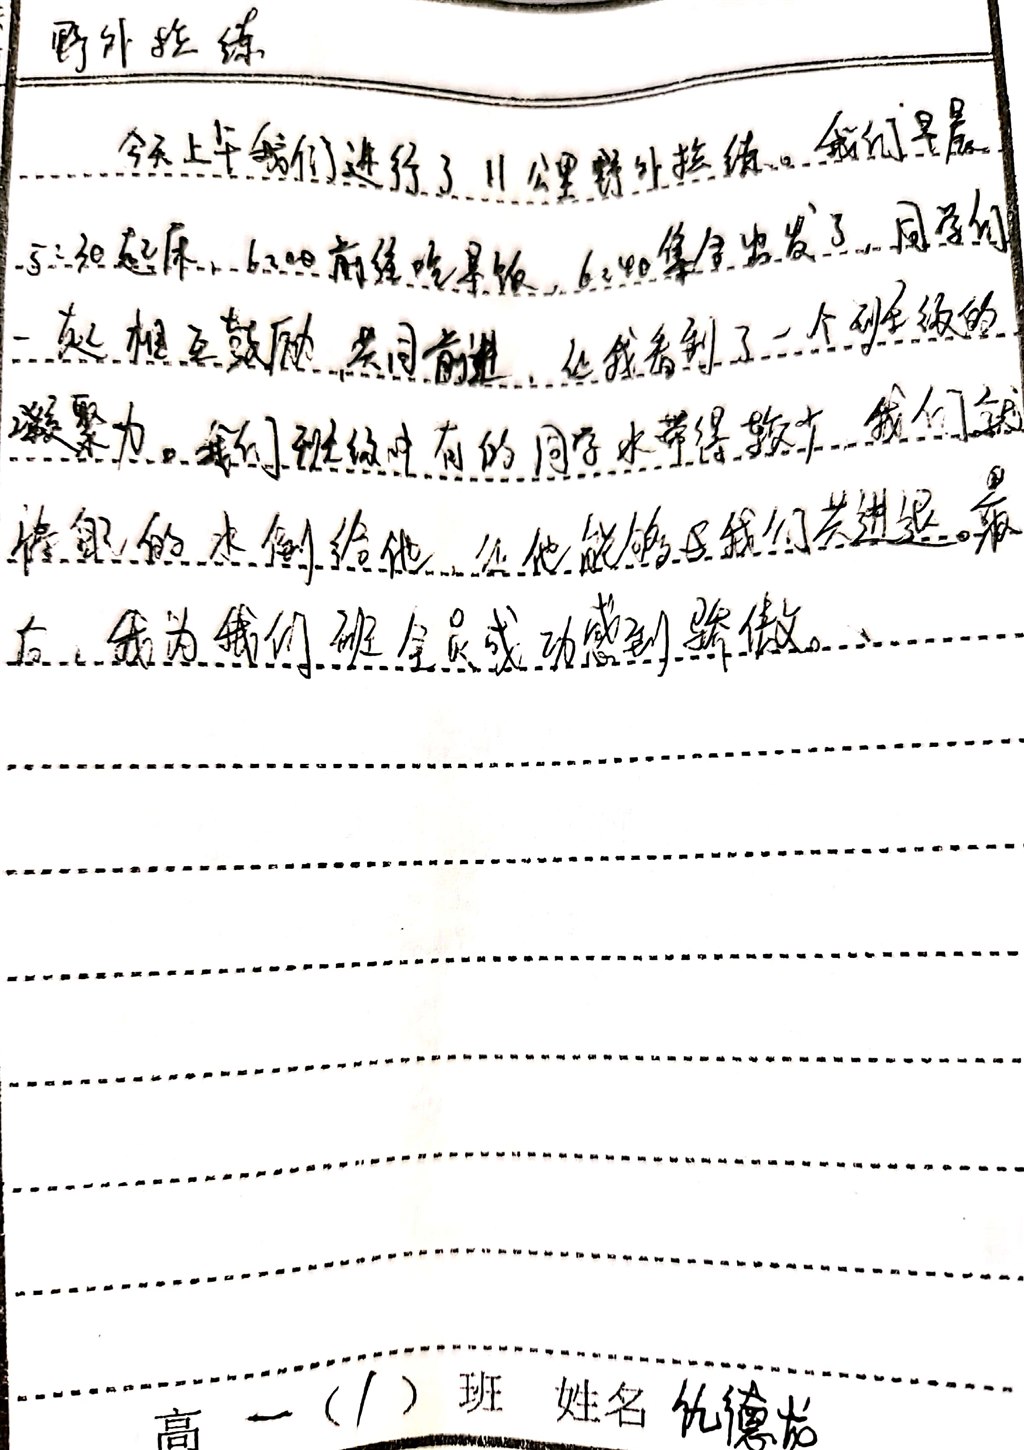 野外拉练
今天上午我们进行了11公里野外拉练。我们早晨
5:30起床，6:00前往吃早饭，6:40集合出发了，同学们
一起相互鼓励，共同前进，让我看到了一个班级的
凝聚力。我们班级中有的同学水带得较少，我们就
将自己的水倒给他，让他能够与我们共进退。最
后，我为我们班全员成功感到骄傲。
高一（1）班 姓名 仇德龙